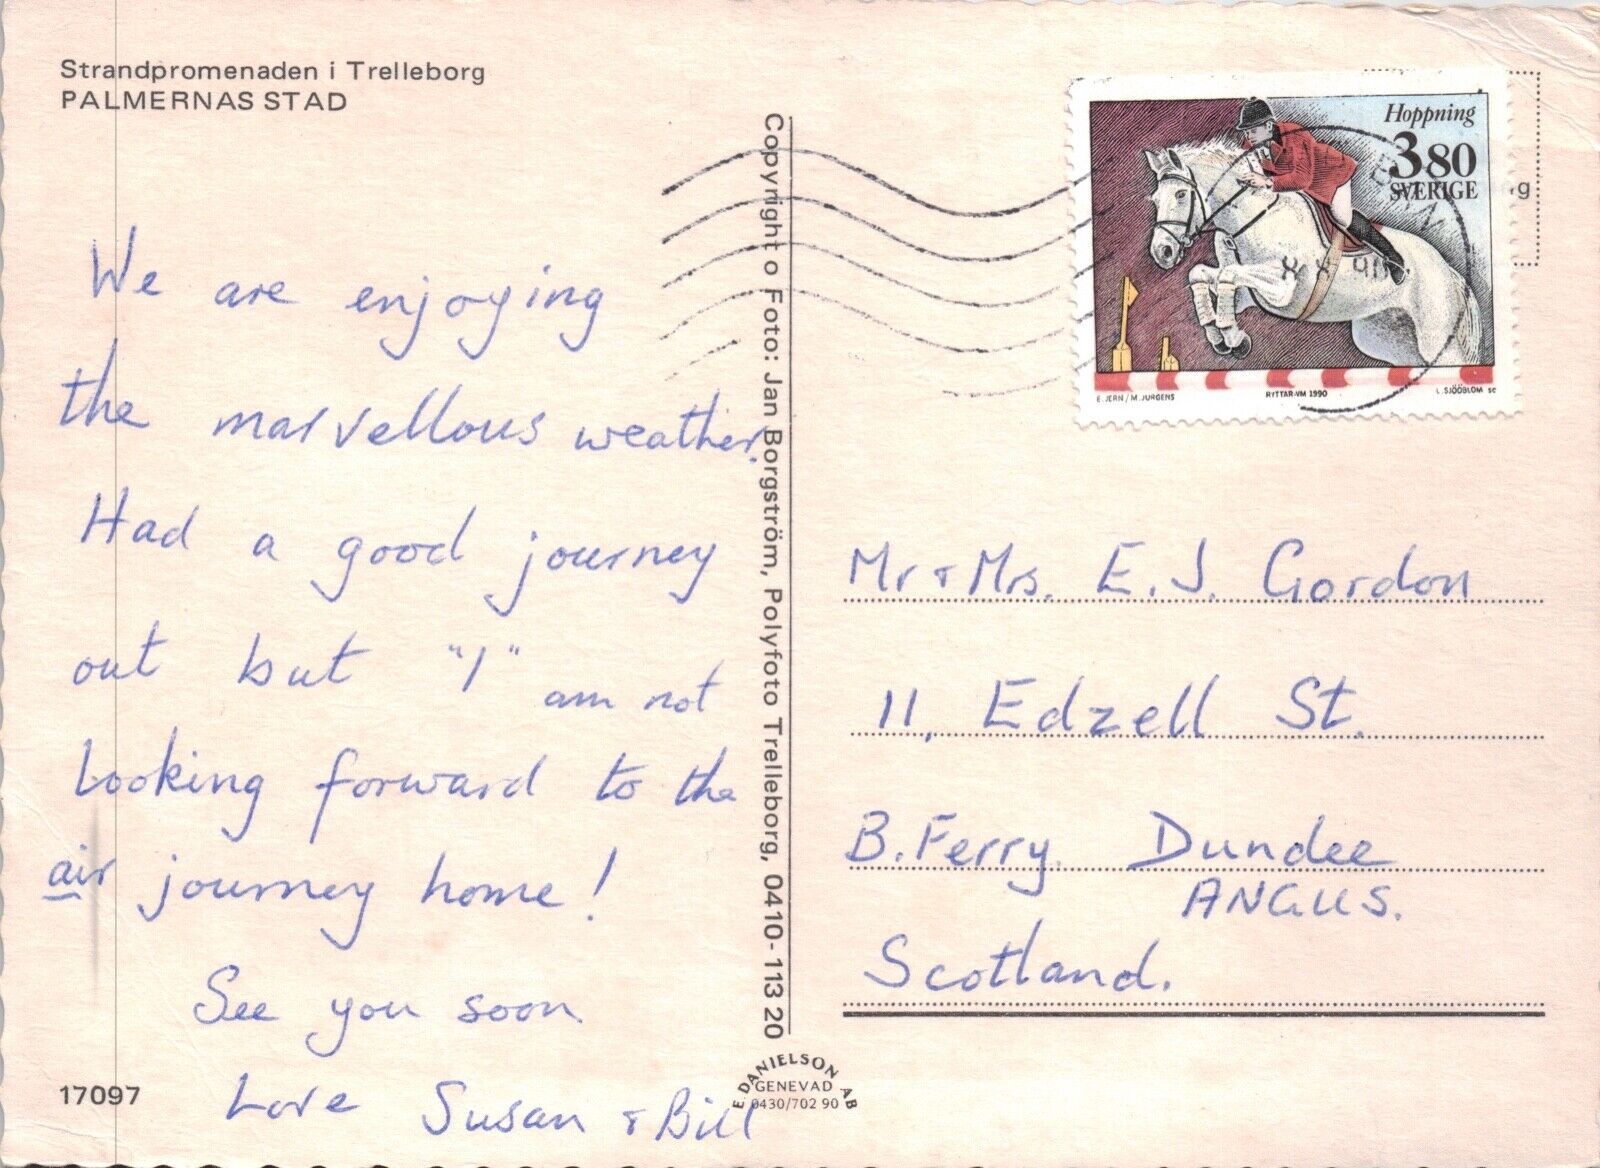 Strandpromenaden i Trelleborg
PALMERNAS STAD
We are enjoying
the marvellous weather.
Had a good journey
out but "I" am not
looking forward to the
air journey home!
See you soon
Love Susan & Bill
17097
Copyright o Foto: Jan Borgström, Polyfoto Trelleborg, 0410-113 20
E. DANIELSON AB
GENEVAD
0430/702 90
Hoppning
3.80
SVERIGE
E. JERN/M. JÖRGENS
RYTTAR-VM 1990
L. SJÖÖBLOM SC
Mr & Mrs. E. J. Gordon
11, Edzell St.
B. Ferry Dundee
ANGUS.
Scotland.